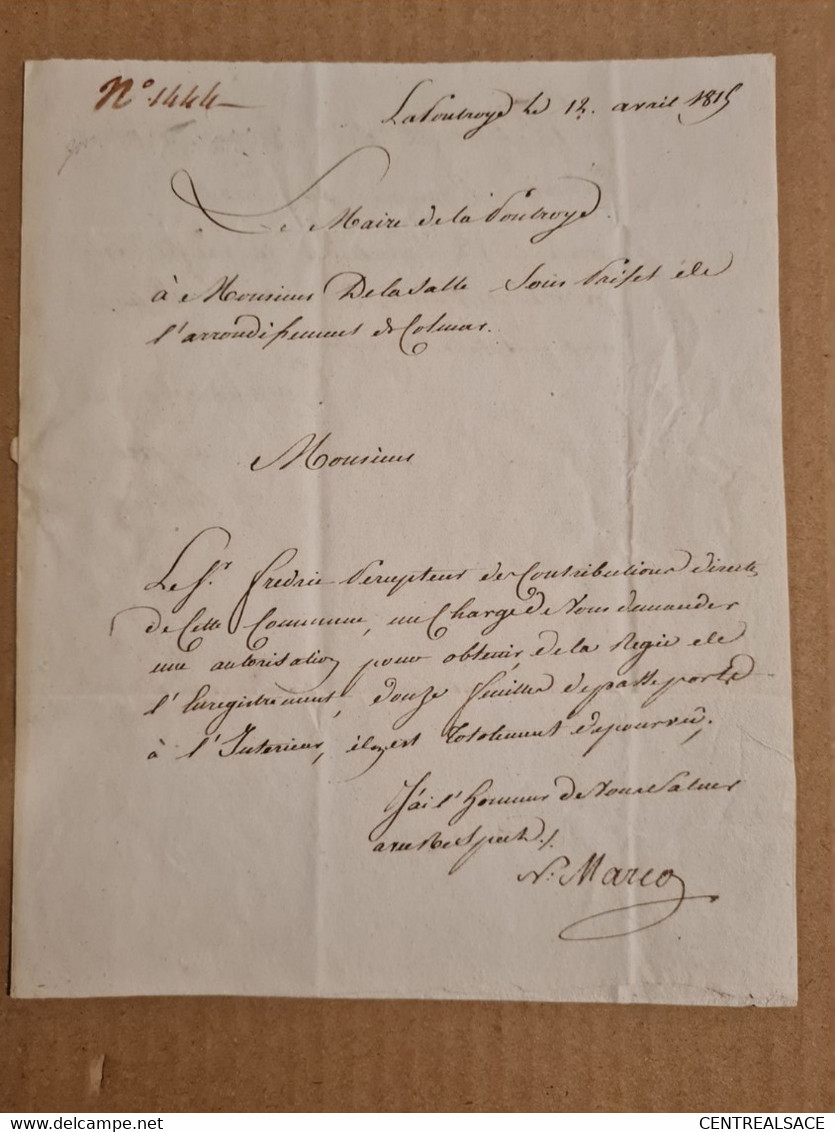 N.° 1444
LaPoutroye le 12. avril 1815
Le Maire de la Poutroye.
à Monsieur Delasalle Sous Préfet de
l'arrondissement de Colmar.
Monsieur
Le Sr. fredric Percepteur des Contributions directes
de Cette Commune, me Charge de Vous demander
une autorisation pour obtenir de la Regie de
l'Enregistrement, douze feuilles de passeports
à l'Interieur, il en est totalement depourvu;
J'ai l'honneur de Vous Saluer
avec Respect./.
N. Marco
CENTREALSACE